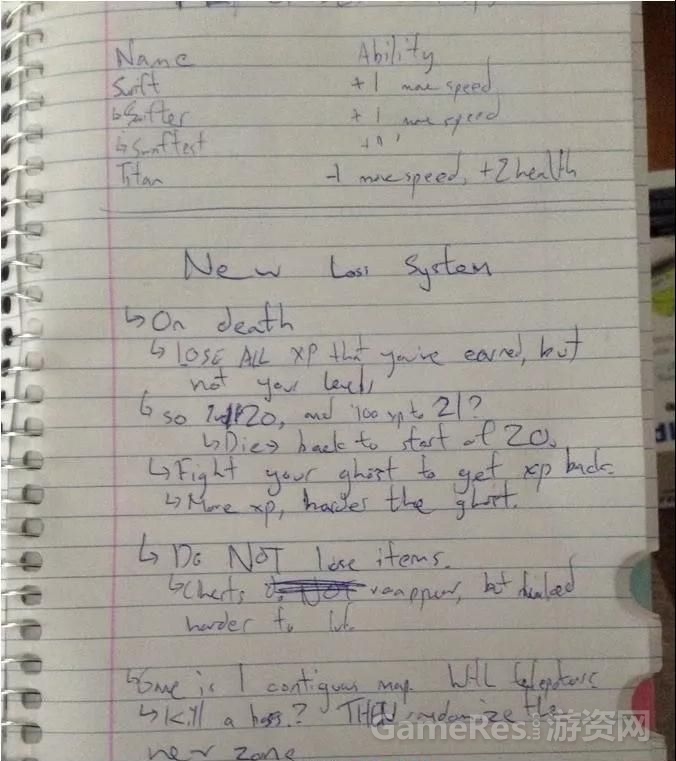 Name Ability
Swift + 1 move speed
↳ Swifter + 1 move speed
↳ Swiftest + "
Titan -1 move speed, +2 health
New Loss System
↳ On death
↳ LOSE ALL xp that you've earned, but
not your levels
↳ so 20, and 100 xp to 21?
↳ Die → back to start of 20.
↳ Fight your ghost to get xp back.
↳ More xp, harder the ghost.
↳ Do NOT lose items.
↳ Chests reappear, but
harder to
↳ Game is 1 contiguous map. With teleporters
↳ Kill a boss? THEN randomize the
new zone
GameRes.com游资网